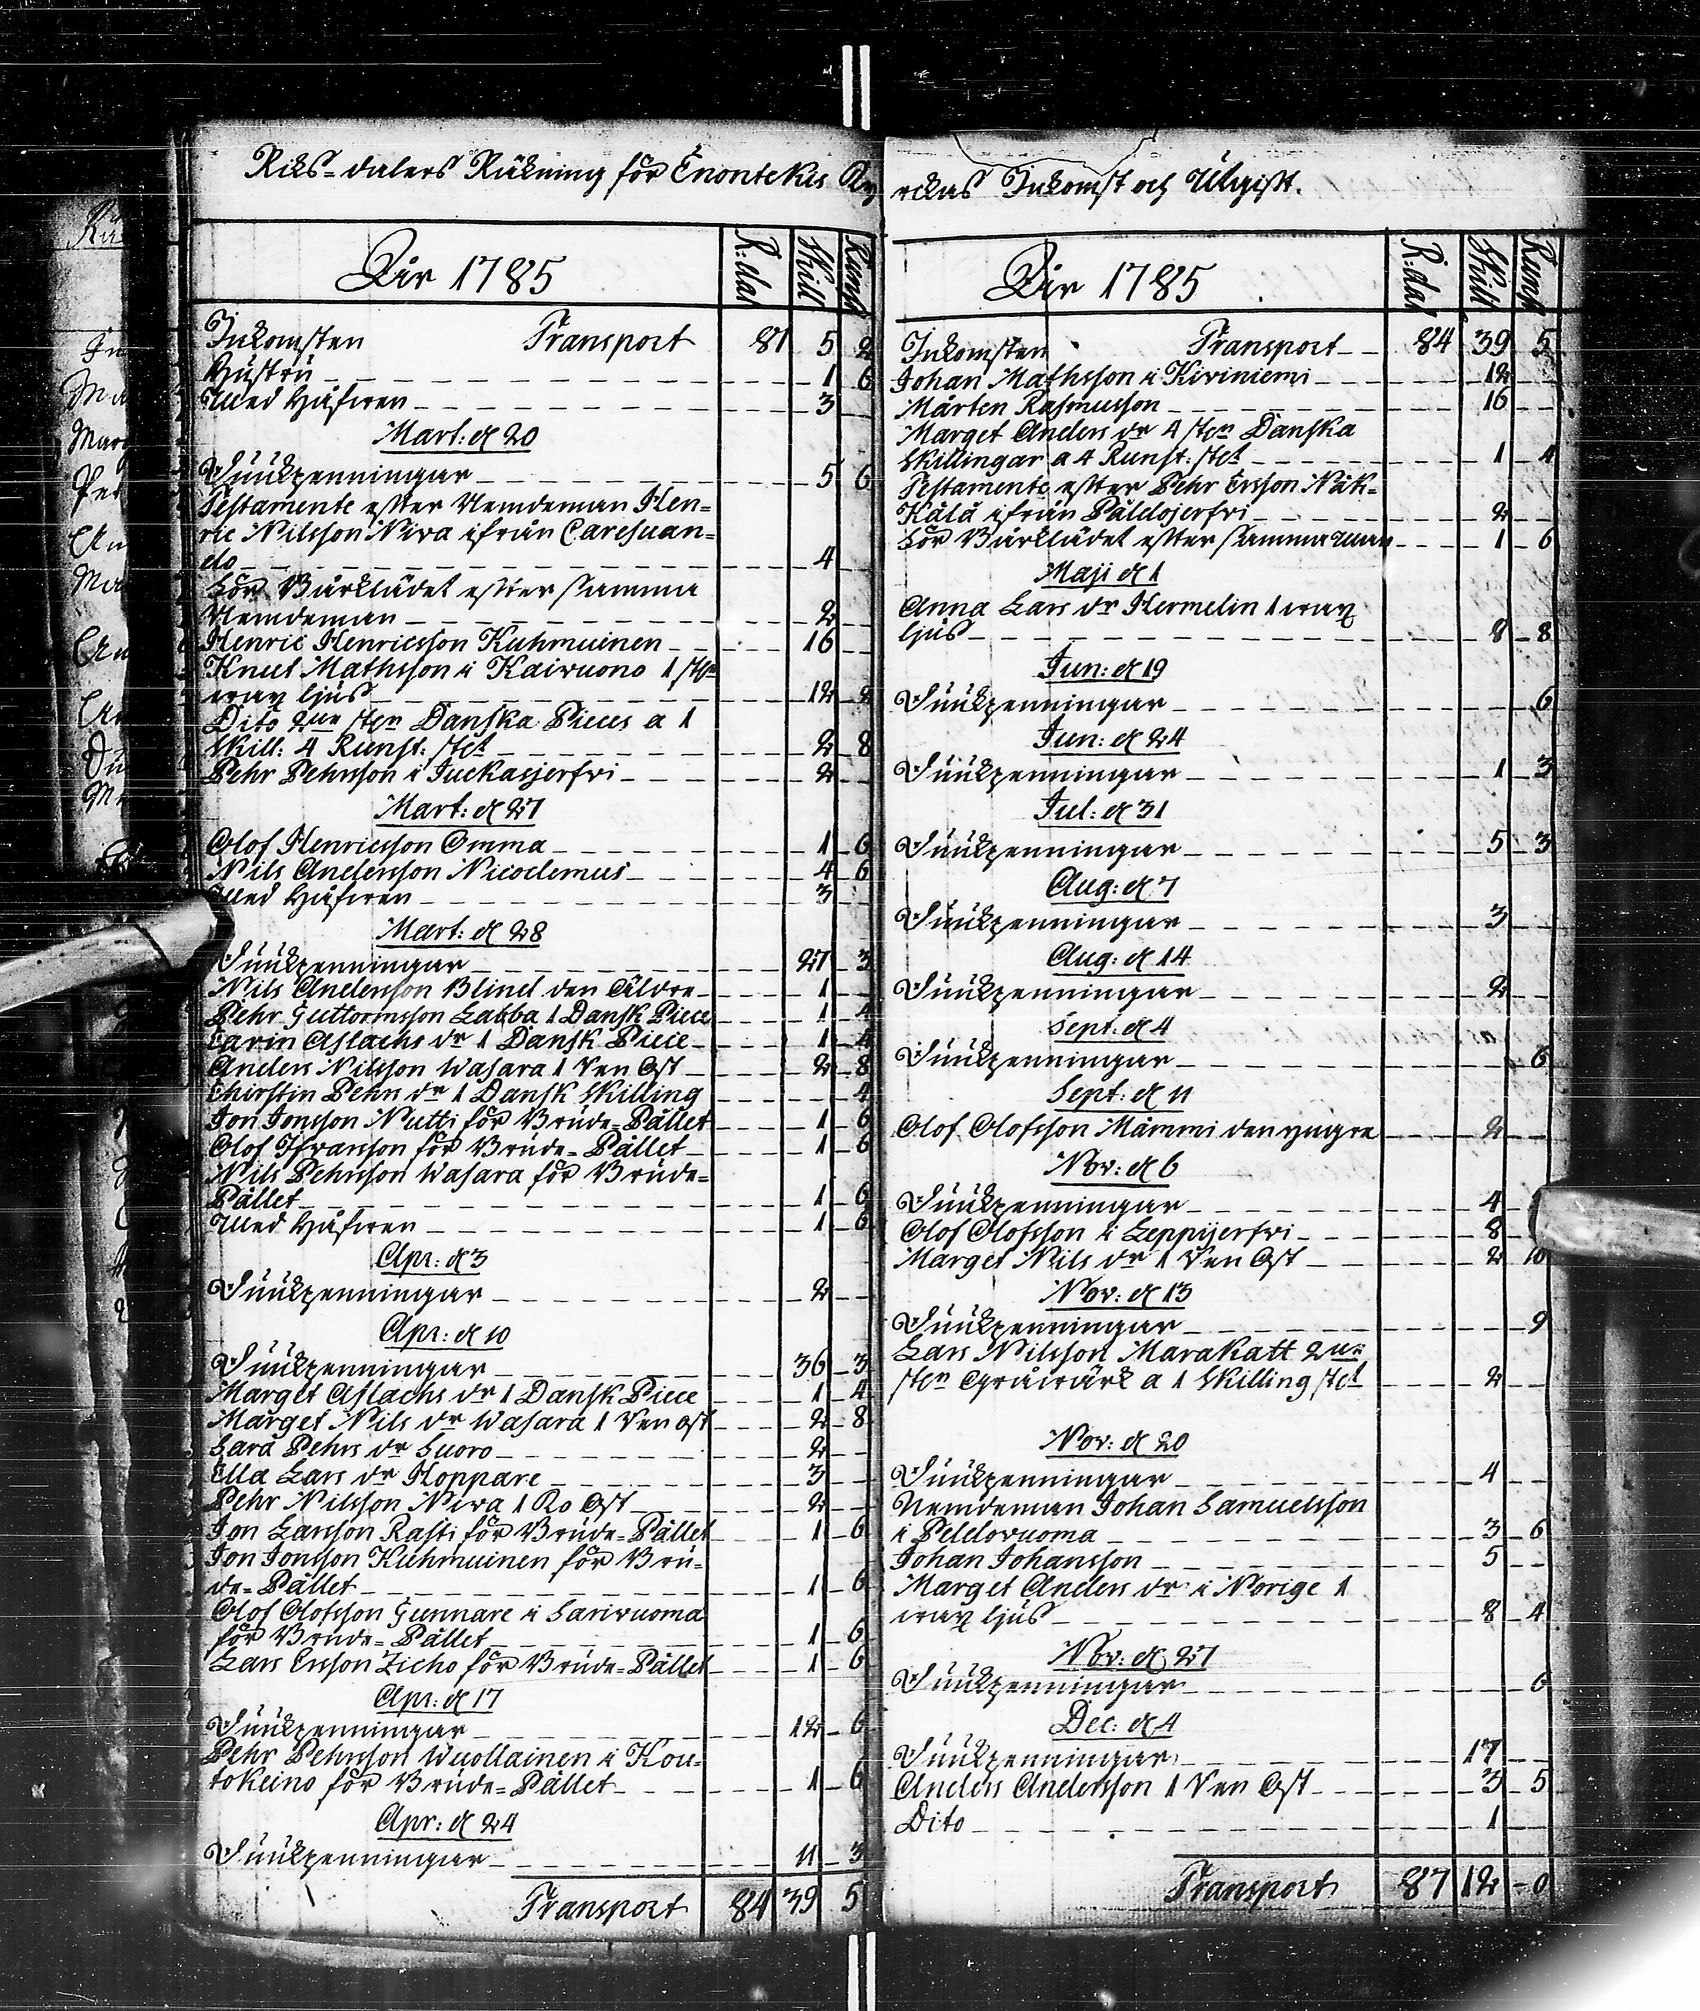 Riks-dalers Räkning för Enontekis Ky
Åhr 1785 R:dal Skill Runst
Inkomsten Transport 81 5 2
Hustru 1 6
Med Håfwen 3
Mart: d 20
Siukpenningar 5 6
Testamente efter Nemdeman Hen-
ric Nilsson Niva ifrån Caresuan-
do 4
För Bårklädet efter samma
Nemdeman 2
Henric Henricsson Kuhmuinen 16
Knut Mathsson i Kaivuono 1 st:n
wax ljus 12 2
Dito 2ne st:n Danska Pieces a 1
Skill: 4 Runst: st:t 2 8
Pehr Pehrsson i Juckasjerfvi 2
Mart: d 27
Olof Henricsson Omma 1 6
Nils Andersson Nicodemus 4 6
Med Håfwen 3
Mart: d 28
Siukpenningar 27 3
Nils Andersson Blind den Äldre 1
Pehr Guttormsson Labba 1 Dansk Piece 1 4
Carin Aslachs dr 1 Dansk Piece 1 4
Anders Nilsson Wasara 1 Ren Ost 2 8
Chirstin Pehrs dr 1 Dansk Skilling 4
Jon Jonsson Nutti för Brude-Pället 1 6
Olof Ifvarsson för Brude-Pället 1 6
Nils Pehrsson Wasara för Brude-
Pället 1 6
Med Håfwen 1 6
Apr: d 3
Siukpenningar 2
Apr: d 10
Siukpenningar 36 3
Marget Aslachs dr 1 Dansk Piece 1 4
Marget Nils dr Wasara 1 Ren ost 2 8
Sara Pehrs dr Suoro 2
Ella Lars dr Hoppare 3
Pehr Nilsson Niva 1 Ko Ost 2
Jon Larsson Rasti för Brude-Pället 1 6
Jon Jonsson Kuhmuinen för Bru-
de-Pället 1 6
Olof Olofsson Gunnare i Sarivuoma
för Brude-Pället 1 6
Lars Ersson Zicho för Brude-Pället 1 6
Apr: d 17
Siukpenningar 12 6
Pehr Pehrsson Wuollainen i Kou-
tokeino för Brude-Pället 1 6
Apr: d 24
Siukpenningar 11 3
Transport 84 39 5
rckas Inkomst och Utgift.
Åhr 1785 R:dal Skill Runst
Inkomsten Transport 84 39 5
Johan Mathsson i Kiviniemi 12
Mårten Rasmusson 16
Marget Anders dr 4 st:n Danska
Skillingar a 4 Runst: st:t 1 4
Testamente efter Pehr Ersson Näk-
Kälä ifrån Päldojerfvi 2
För Bårklädet efter samma man 1 6
Maji d 1
Anna Lars dr Hermelin 1 wax
ljus 8 8
Jun: d 19
Siukpenningar 6
Jun: d 24
Siukpenningar 1 3
Jul: d 31
Siukpenningar 5 3
Aug: d 7
Siukpenningar 3
Aug: d 14
Siukpenningar 2
Sept: d 4
Siukpenningar 6
Sept: d 11
Olof Olofsson Mämmi den yngre 2
Nov: d 6
Siukpenningar 4
Olof Olofsson i Leppijerfvi 8
Marget Nils dr 1 Ren Ost 2 10
Nov: d 13
Siukpenningar 9
Lars Nilsson Marakatt 2ne
st:n Gråwärk a 1 Skilling st:t 2
Nov: d 20
Siukpenningar 4
Nemdeman Johan Samuelsson
i Peldovuoma 3 6
Johan Johansson 5
Marget Anders dr i Norige 1
wax ljus 8 4
Nov: d 27
Siukpenningar 6
Dec: d 4
Siukpenningar 17
Anders Andersson 1 Ren Ost 3 5
Dito 1
Transport 87 12 0